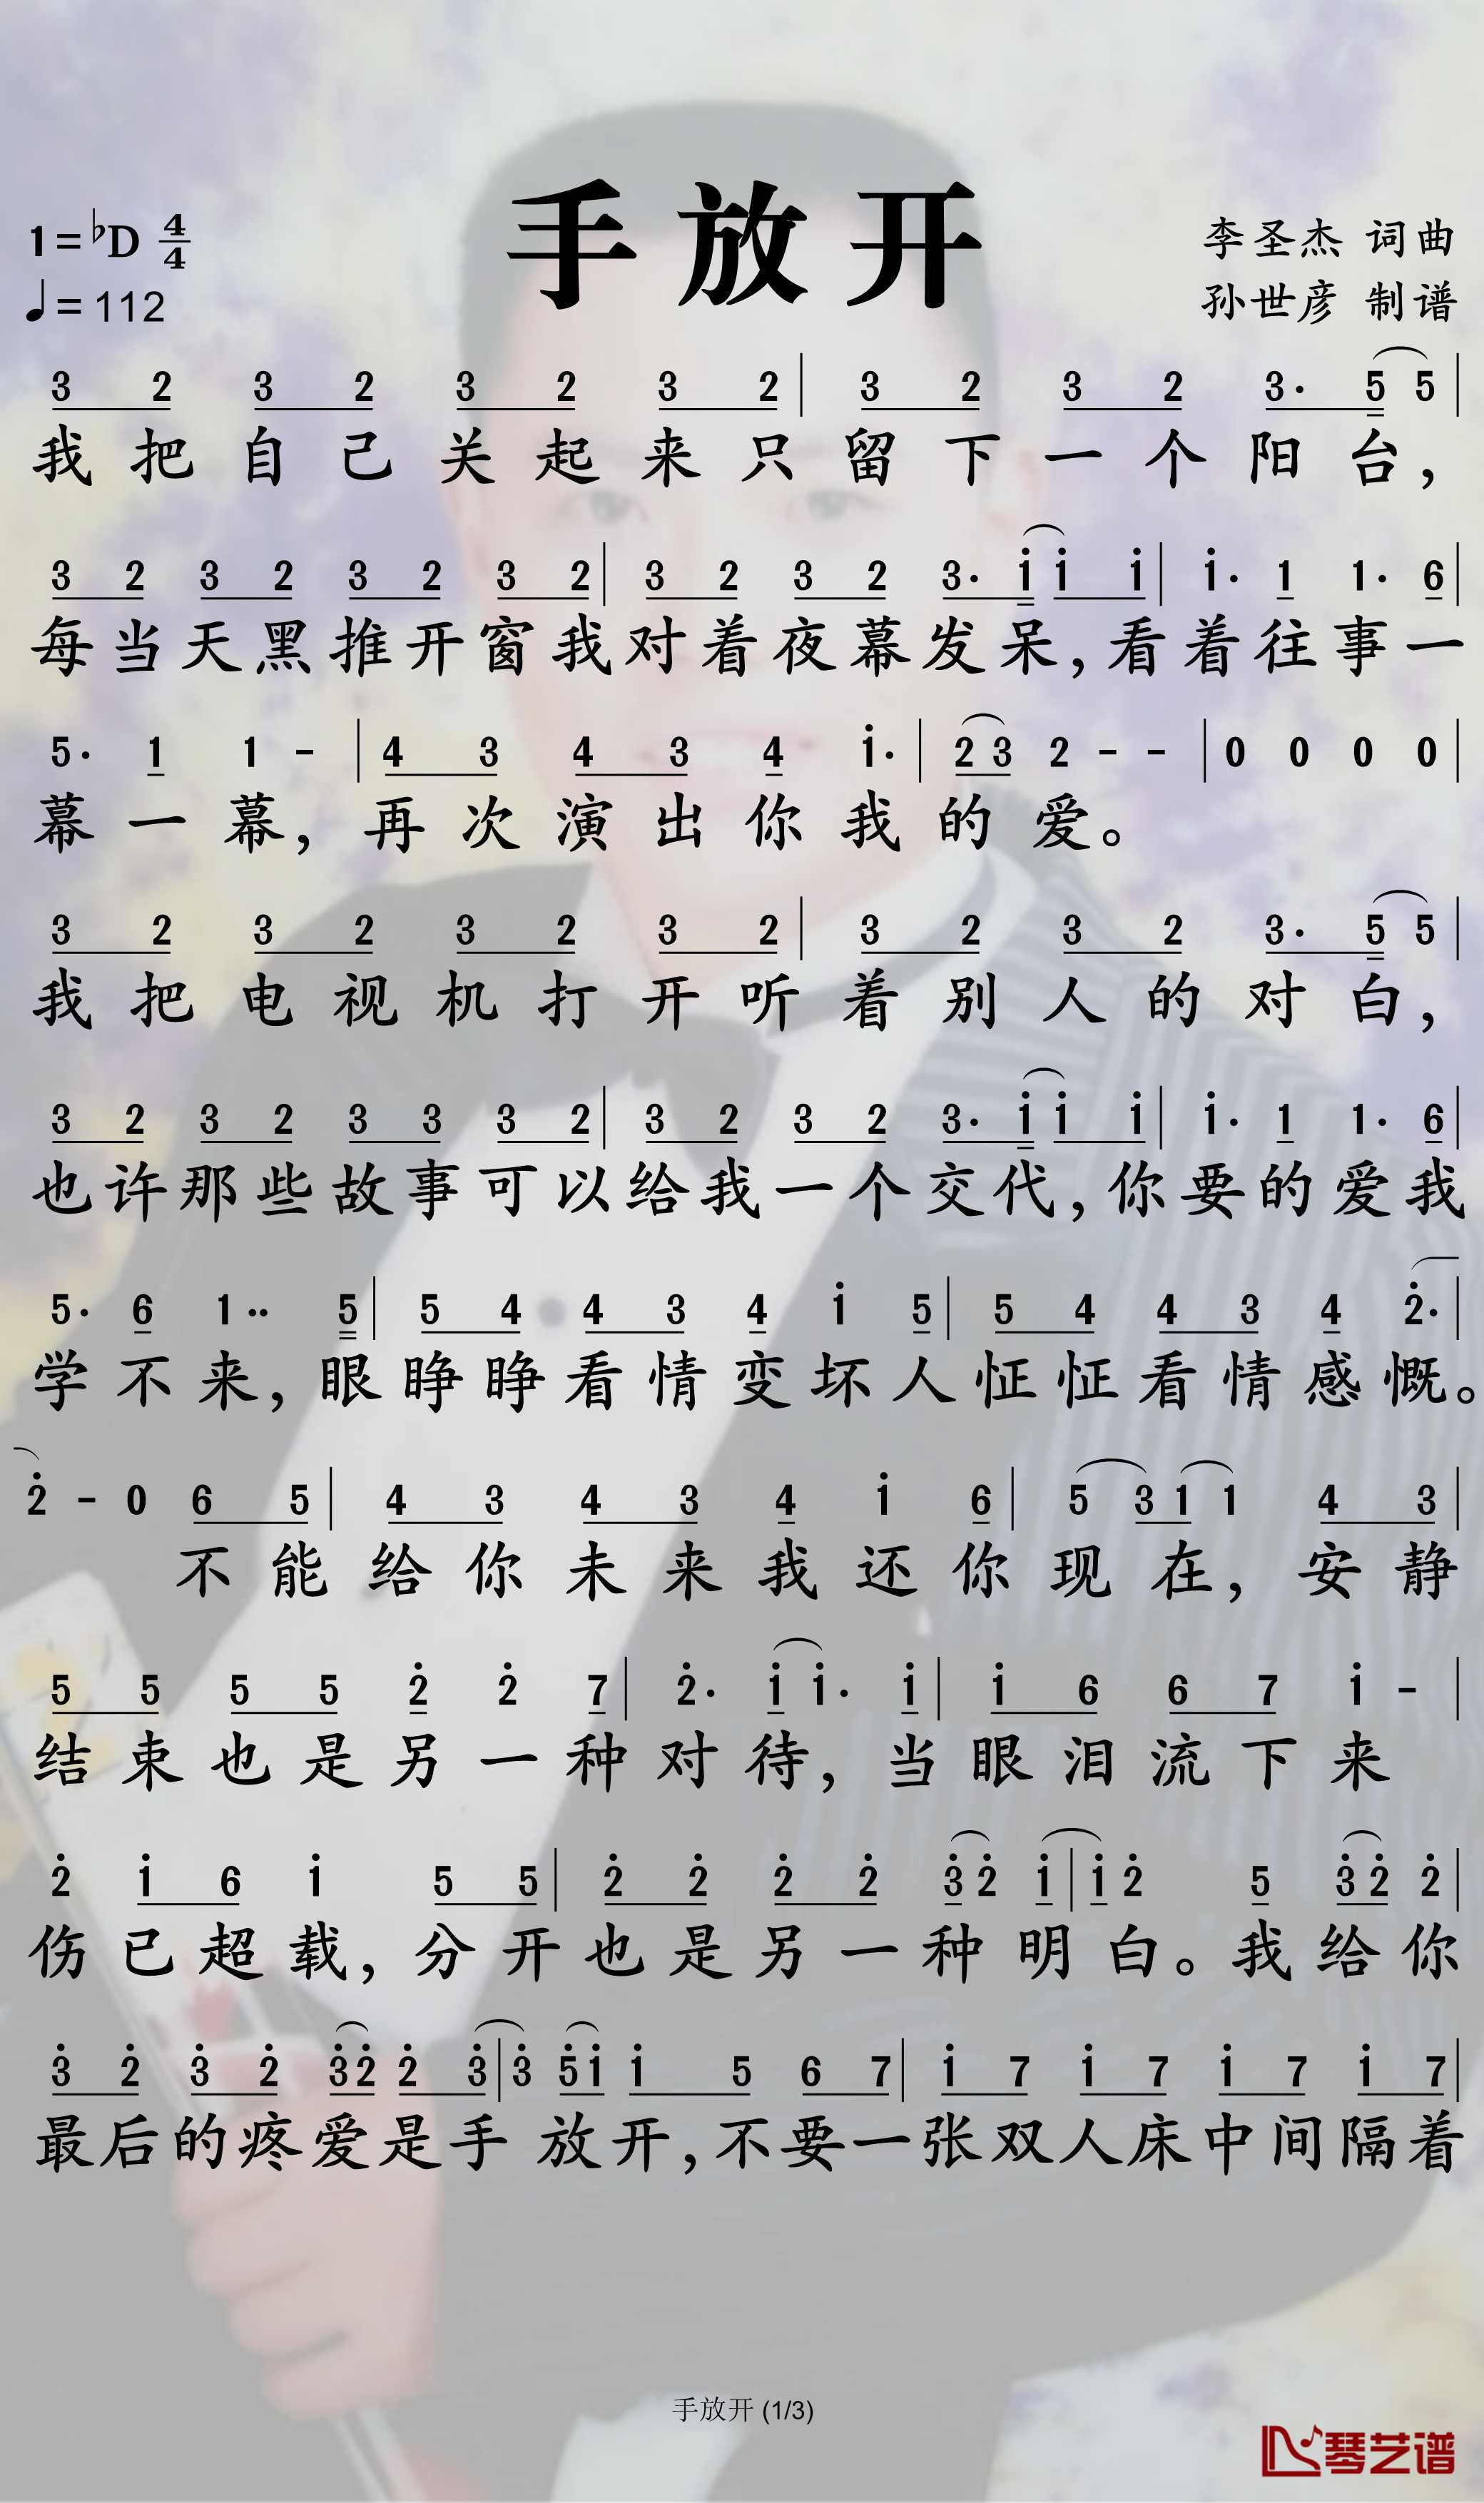 手放开
1=♭D 4/4
♩=112
李圣杰 词曲
孙世彦 制谱
3 2 3 2 3 2 3 2 | 3 2 3 2 3· 5 5 |
我把自己关起来只留下一个阳台，
3 2 3 2 3 2 3 2 | 3 2 3 2 3· i i i | i· 1 1· 6 |
每当天黑推开窗我对着夜幕发呆，看着往事一
5· 1 1 - | 4 3 4 3 4 i· | 2 3 2 - - | 0 0 0 0 |
幕一幕，再次演出你我的爱。
3 2 3 2 3 2 3 2 | 3 2 3 2 3· 5 5 |
我把电视机打开听着别人的对白，
3 2 3 2 3 3 3 2 | 3 2 3 2 3· i i i | i· 1 1· 6 |
也许那些故事可以给我一个交代，你要的爱我
5· 6 1·· 5 | 5 4 4 3 4 i 5 | 5 4 4 3 4 2̇· |
学不来，眼睁睁看情变坏人怔怔看情感慨。
2̇ - 0 6 5 | 4 3 4 3 4 i 6 | 5 3 1 1 4 3 |
不能给你未来我还你现在，安静
5 5 5 5 2̇ 2̇ 7 | 2̇· i i· i | i 6 6 7 i - |
结束也是另一种对待，当眼泪流下来
2̇ i 6 i 5 5 | 2̇ 2̇ 2̇ 2̇ 3̇ 2̇ i | i 2̇ 5 3̇ 2̇ 2̇ |
伤已超载，分开也是另一种明白。我给你
3̇ 2̇ 3̇ 2̇ 3̇ 2̇ 2̇ 3̇ | 3̇ 5̇ i i 5 6 7 | i 7 i 7 i 7 i 7 |
最后的疼爱是手放开，不要一张双人床中间隔着
手放开 (1/3)
琴艺谱